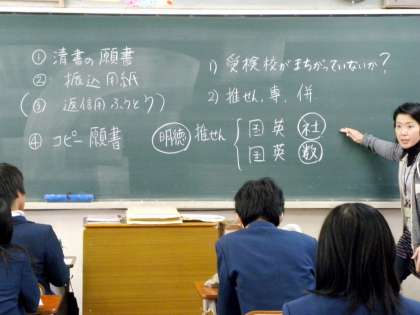 ① 清書の願書
② 振込用紙
(③ 返信用ふうとう)
④ コピー願書
1) 受検校がまちがっていないか?
2) 推せん, 専, 併
明徳 推せん { 国 英 社
国 英 数